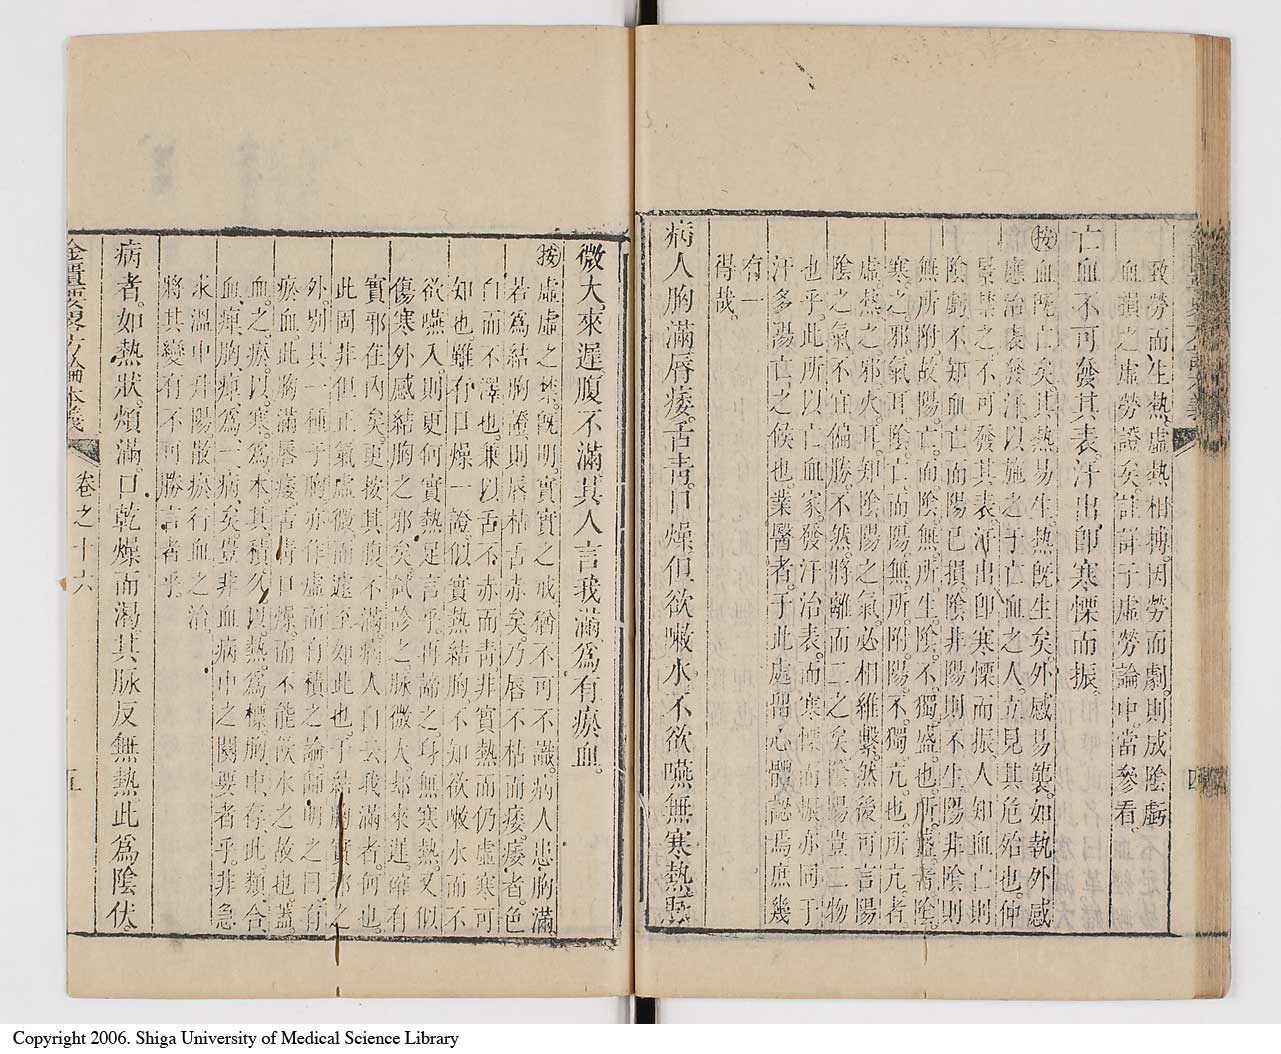 致勞而生熱虛熱相搏因勞而劇則成陰虧
血損之虛勞證矣詳于虛勞論中當參看
亡血不可發其表汗出卽寒慄而振
按血旣亡矣其熱易生熱旣生矣外感易襲如執外感
應治表發汗以施之于亡血之人立見其危殆也仲
景禁之不可發其表汗出卽寒慄而振人知血亡則
陰虧不知血亡而陽已損陰非陽則不生陽非陰則
無所附故陽亡而陰無所生陰不獨盛也所盛者陰
寒之邪氣耳陰亡而陽無所附陽不獨亢也所亢者
虛熱之邪火耳知陰陽之氣必相維繫然後可言陽
陰之氣不宜偏勝不然將離而二之矣陰陽豈二物
也乎此所以亡血家發汗治表而寒慄而振亦同于
汗多陽亡之候也業醫者于此處留心體認焉庶幾
有一
得哉
病人胸滿唇痿舌靑口燥但欲嗽水不欲嚥無寒熱脈
微大來遲腹不滿其人言我滿爲有瘀血
按虛虛之禁旣明實實之戒猶不可不識病人患胸滿
若爲結胸證則唇枯舌赤矣乃唇不枯而痿痿者色
白而不澤也兼以舌不赤而靑非實熱而仍虛寒可
知也雖有口燥一證似實熱結胸不知欲嗽水而不
欲嚥入則更何實熱足言乎再諦之身無寒熱又似
傷寒外感結胸之邪矣試診之脈微大却來遲確有
實邪在內矣更按其腹不滿病人自云我滿者何也
此固非但正氣虛微而遽至如此也于結胸實邪之
外別具一種于胸亦作虛而有積之論師明之曰有
瘀血此胸滿唇痿舌靑口燥而不能飲水之故也蓋
血之瘀以寒爲本其積久以熱爲標胸中存此類合
血痺胸痺爲一病矣豈非血病中之關要者乎非急
求溫中升陽散瘀行血之治
將其變有不可勝言者乎
病者如熱狀煩滿口乾燥而渴其脈反無熱此爲陰伏
卷之十六
五
Copyright 2006. Shiga University of Medical Science Library